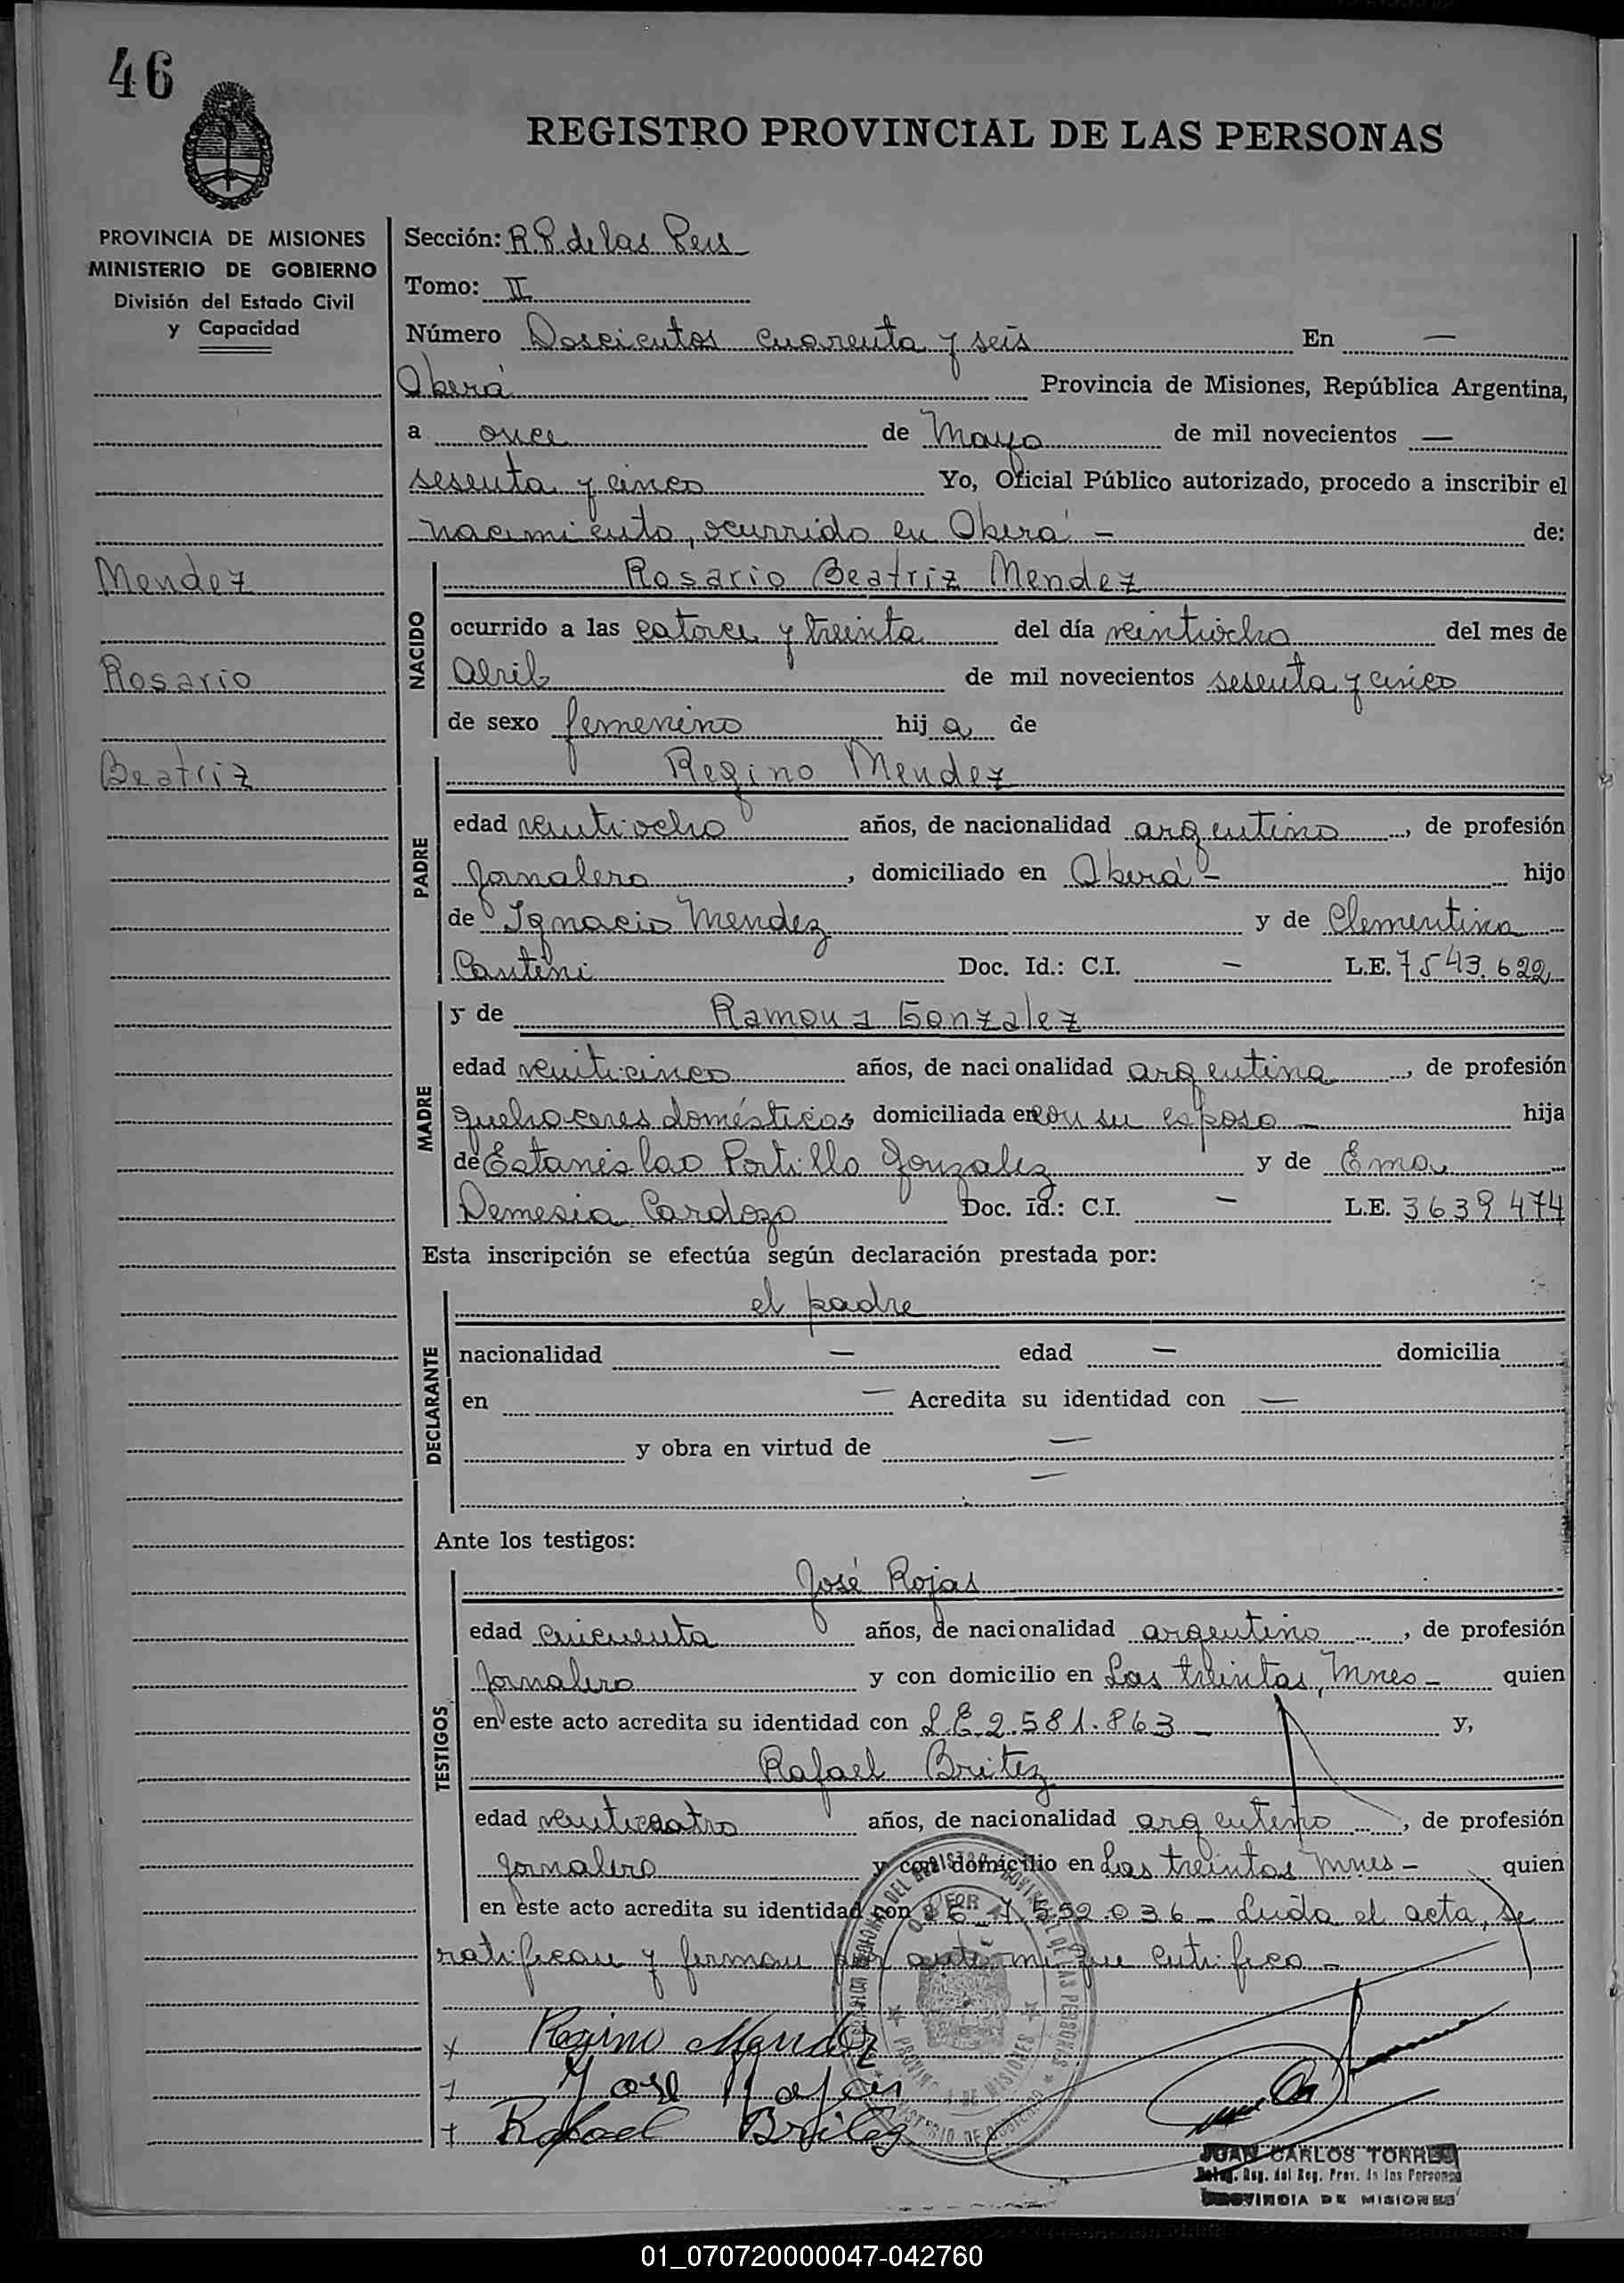 46
REGISTRO PROVINCIAL DE LAS PERSONAS
PROVINCIA DE MISIONES
MINISTERIO DE GOBIERNO
División del Estado Civil
y Capacidad
Mendez
Rosario
Beatriz
Sección: R.P. de las Pers
Tomo: II
Número Doscientos cuarenta y seis En —
Oberá Provincia de Misiones, República Argentina,
a once de Mayo de mil novecientos —
sesenta y cinco Yo, Oficial Público autorizado, procedo a inscribir el
nacimiento, ocurrido en Oberá - de:
NACIDO
Rosario Beatriz Mendez
ocurrido a las catorce y treinta del día veintiocho del mes de
Abril de mil novecientos sesenta y cinco
de sexo femenino hij a de
PADRE
Regino Mendez
edad veintiocho años, de nacionalidad argentino, de profesión
Jornalero, domiciliado en Oberá - hijo
de Ignacio Mendez y de Clementina
Cantini Doc. Id.: C.I. — L.E. 7543.622
MADRE
y de Ramona Gonzalez
edad veinticinco años, de nacionalidad argentina, de profesión
quehaceres domésticos domiciliada en con su esposo - hija
de Estanislao Portillo Gonzalez y de Ema
Demesia Cardozo Doc. Id.: C.I. — L.E. 3639474
Esta inscripción se efectúa según declaración prestada por:
DECLARANTE
el padre
nacionalidad — edad — domicilia
en — Acredita su identidad con —
y obra en virtud de —
—
Ante los testigos:
TESTIGOS
José Rojas
edad cincuenta años, de nacionalidad argentino, de profesión
Jornalero y con domicilio en Los treintas, Mnes - quien
en este acto acredita su identidad con L.E 2.581.863 - y,
Rafael Britez
edad venticuatro años, de nacionalidad argentino, de profesión
Jornalero y con domicilio en Los treintas Mnes - quien
en este acto acredita su identidad con LE 7.552.036 - Leida el acta, se
ratifican y firman por ante mi que certifico -
x Regino Mendez
Jose Rojas
+ Rafael Britez
JUAN CARLOS TORRES
Deleg. Reg. del Reg. Prov. de las Personas
PROVINCIA DE MISIONES
01_070720000047-042760